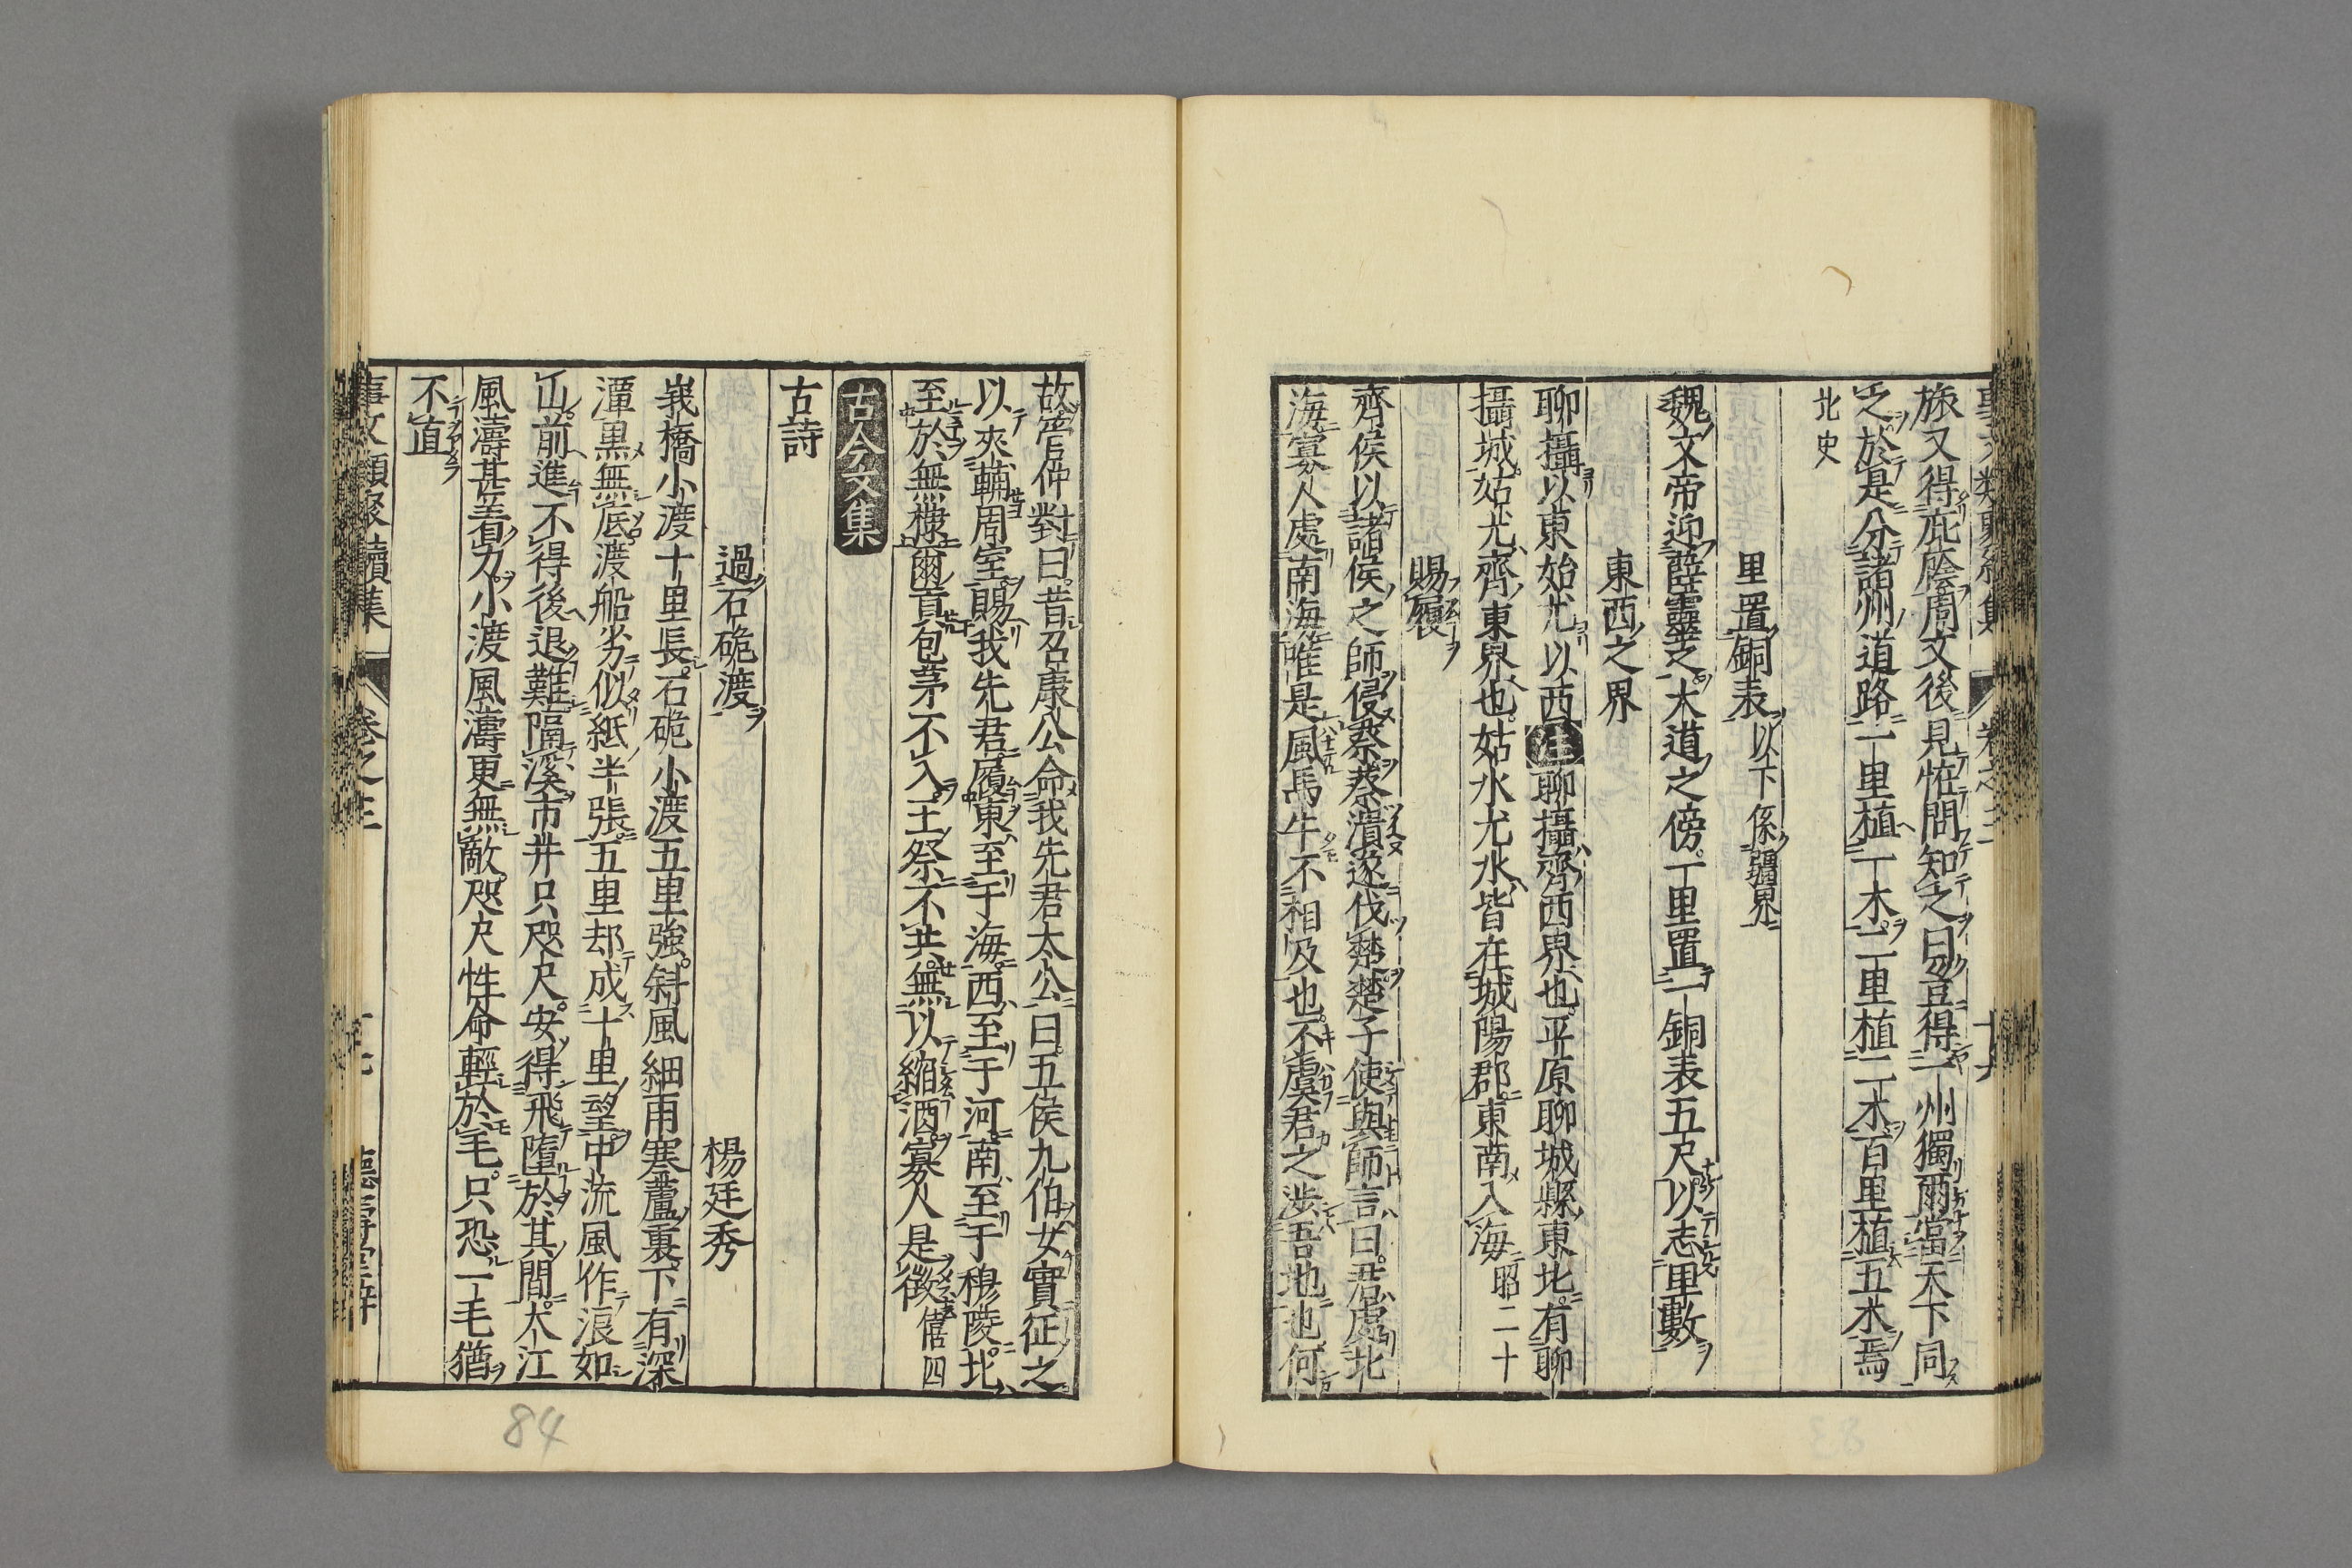 旅又得庇廕周文後見怪問知之曰豈得一州獨爾當天下同
之於是分諸州道路一里植一木二里植二木百里植五木焉
北史
里置銅表以下係疆界
魏文帝迎薛靈芝大道之傍一里置一銅表五尺以志里數
東西之界
聊攝以東姑尤以西注聊攝齊西界也平原聊城縣東北有聊
攝城姑尤齊東界也姑水尤水皆在城陽郡東南入海昭二十
賜履
齊侯以諸侯之師侵蔡蔡潰遂伐楚楚子使與師言曰君處北
海寡人處南海唯是風馬牛不相及也不虞君之涉吾地也何
故管仲對曰昔召康公命我先君太公曰五侯九伯女實征之
以夾輔周室賜我先君履東至于海西至于河南至于穆陵北
至於無棣爾貢包茅不入王祭不共無以縮酒寡人是徵僖四
古今文集
古詩
過石硊渡
楊廷秀
峩橋小渡十里長石硊小渡五里強斜風細雨寒蘆裏下有深
潭黒無底渡船劣似紙半張五里却成十里望中流風作浪如
山前進不得後退難隔溪市井只咫尺安得飛墮於其間大江
風濤甚着力小渡風濤更無敵咫尺性命輕於毛只恐一毛猶
不直
事文類聚續集 卷之三
84